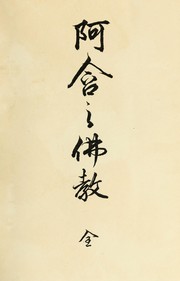 阿含之佛教
全